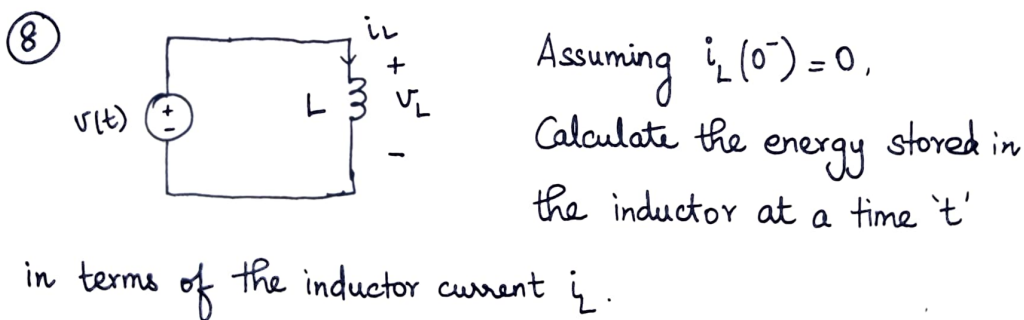 8
i_L
+
v(t) + - L v_L
-
Assuming i_L(0⁻) = 0,
Calculate the energy stored in
the inductor at a time 't'
in terms of the inductor current i_L.